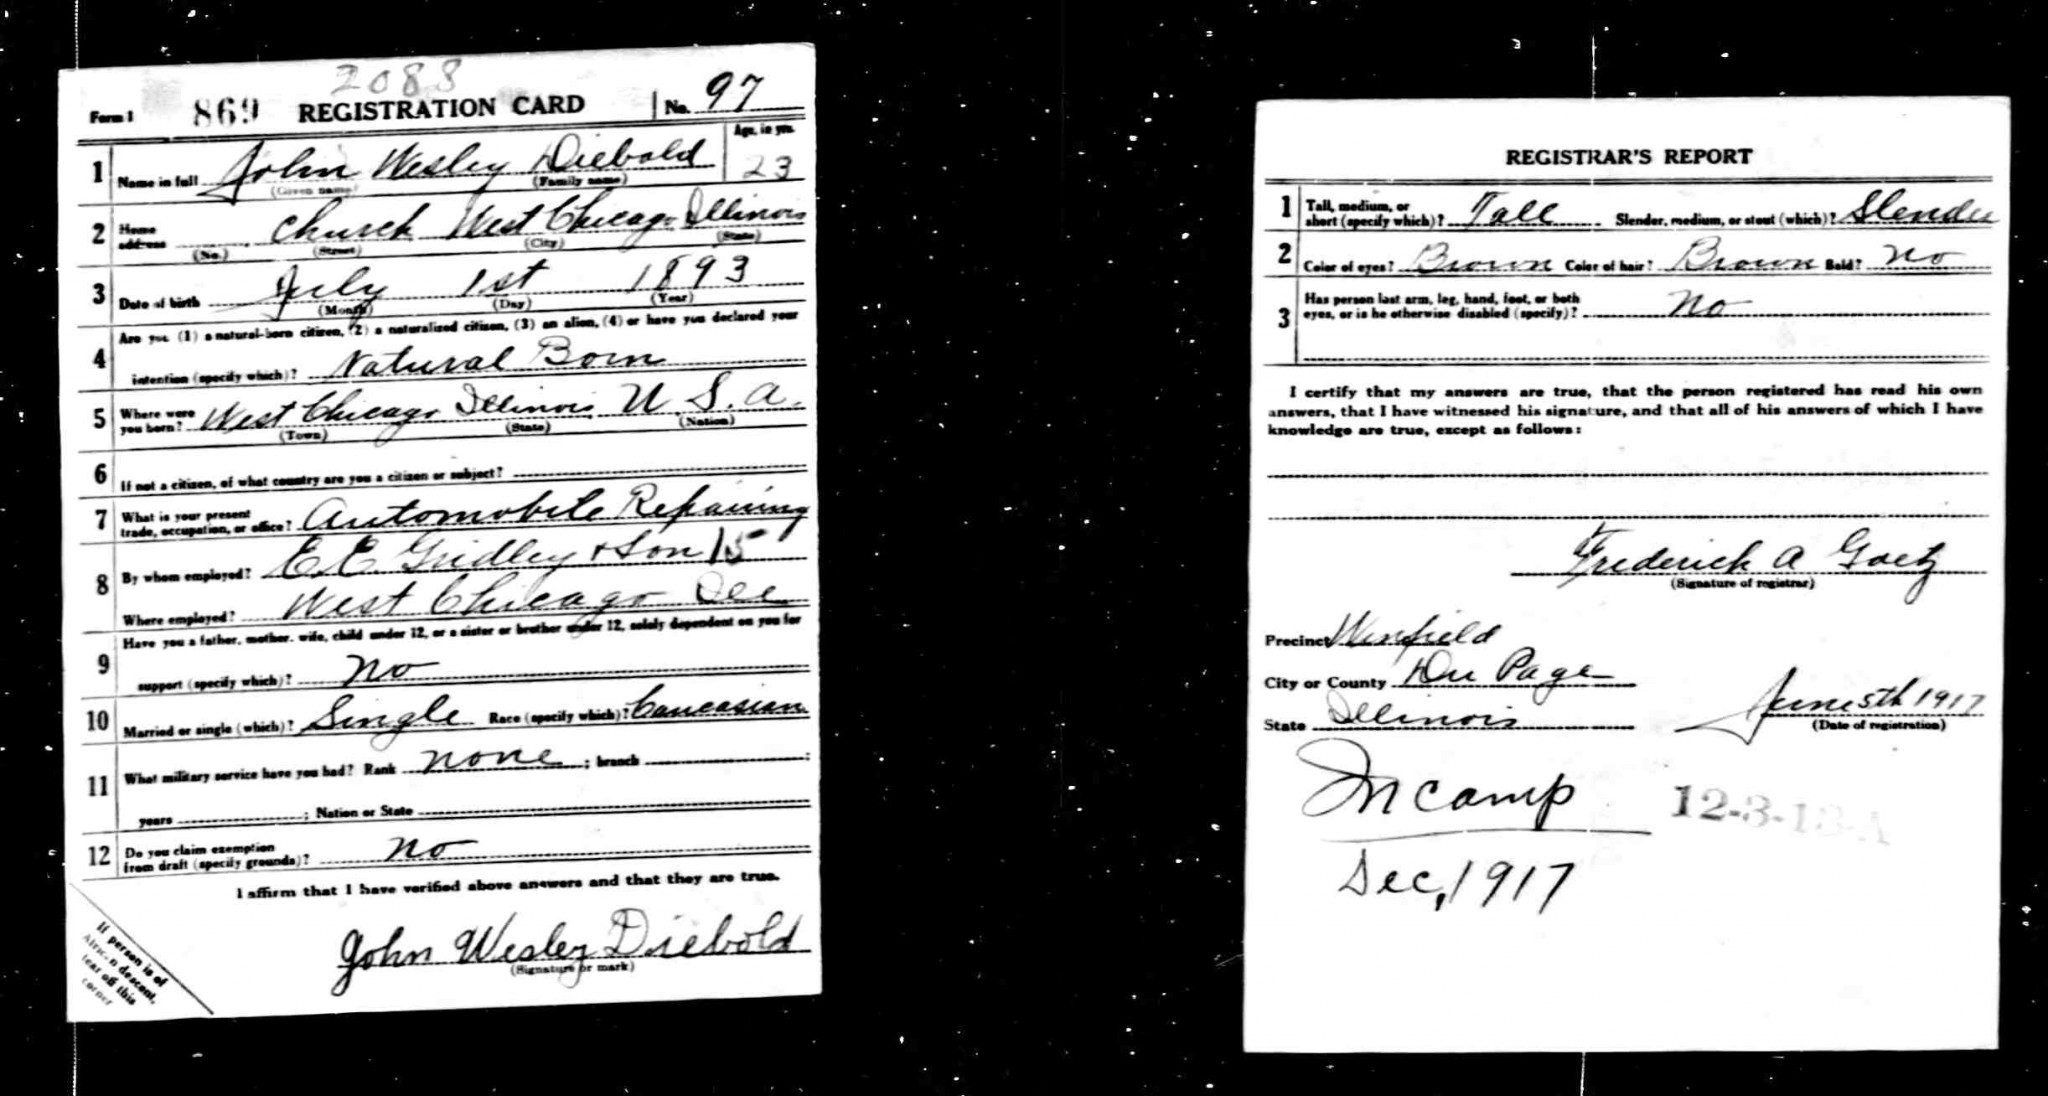 2088
Form 1 869 REGISTRATION CARD No. 97
1 Name in full John Wesley Diebold Age, in yrs. 23
(Given name) (Family name)
2 Home address Church West Chicago Illinois
(No.) (Street) (City) (State)
3 Date of birth July 1st 1893
(Month) (Day) (Year)
4 Are you (1) a natural-born citizen, (2) a naturalized citizen, (3) an alien, (4) or have you declared your
intention (specify which)? Natural Born
5 Where were you born? West Chicago Illinois U S. A.
(Town) (State) (Nation)
6 If not a citizen, of what country are you a citizen or subject?
7 What is your present trade, occupation, or office? Automobile Repairing
8 By whom employed? E E Gridley & Son 15
Where employed? West Chicago Ill
9 Have you a father, mother, wife, child under 12, or a sister or brother under 12, solely dependent on you for
support (specify which)? No
10 Married or single (which)? Single Race (specify which)? Caucasian
11 What military service have you had? Rank none ; branch ;
years ; Nation or State
12 Do you claim exemption from draft (specify grounds)? No
I affirm that I have verified above answers and that they are true.
John Wesley Diebold
(Signature or mark)
If person is of
African descent,
tear off this
corner
REGISTRAR'S REPORT
1 Tall, medium, or short (specify which)? Tall Slender, medium, or stout (which)? Slender
2 Color of eyes? Brown Color of hair? Brown Bald? No
3 Has person lost arm, leg, hand, foot, or both
eyes, or is he otherwise disabled (specify)? No
I certify that my answers are true, that the person registered has read his own
answers, that I have witnessed his signature, and that all of his answers of which I have
knowledge are true, except as follows:
Frederick A Goetz
(Signature of registrar)
Precinct Winfield
City or County Du Page
State Illinois
June 5th 1917
(Date of registration)
In camp
12-3-13-A
Dec, 1917